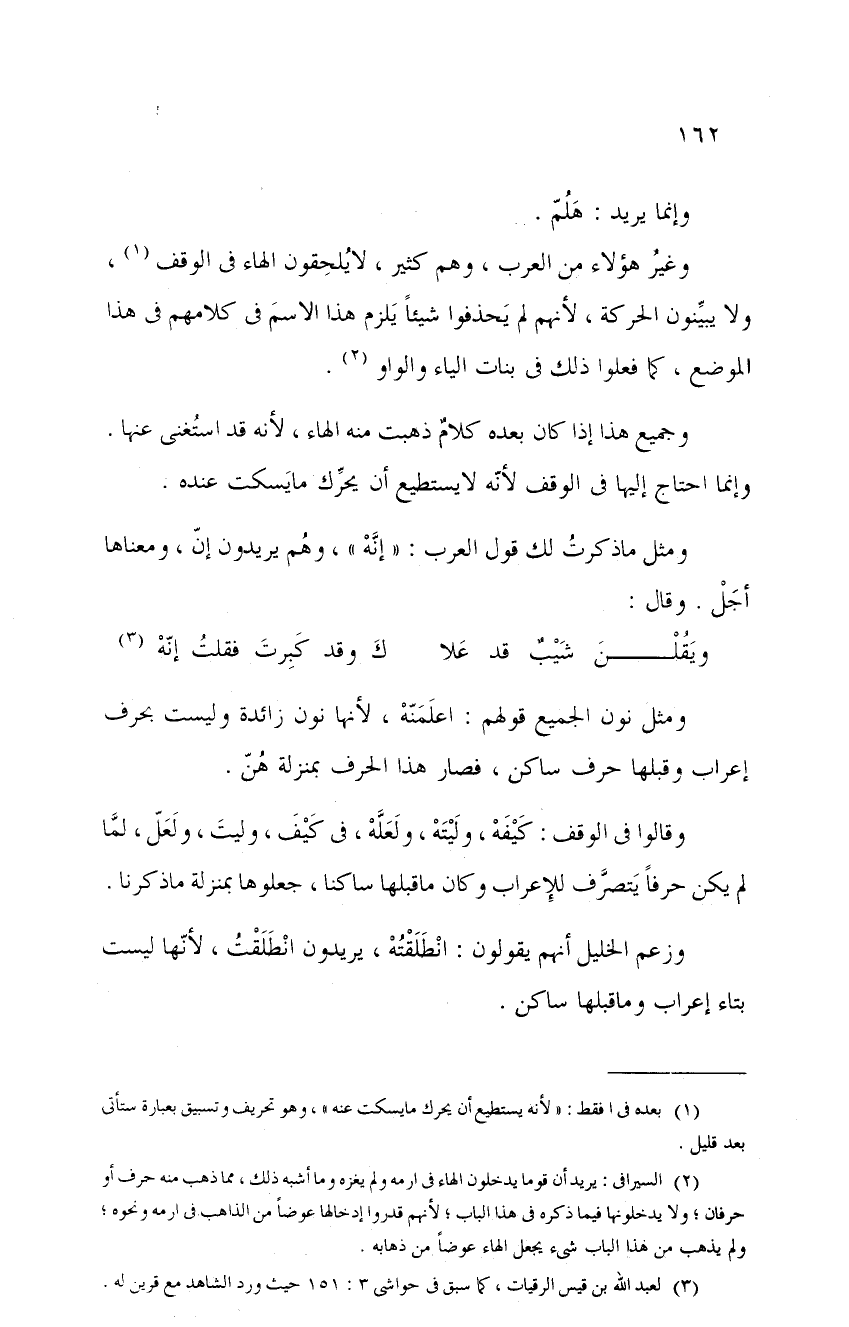 ١٦٢
وإنما يريد : هَلُمّ .
وغيرُ هؤلاء من العرب ، وهم كثير ، لايُلحِقون الهاء فى الوقف (١) ،
ولا يبيِّنون الحركة ، لأنهم لم يَحذفوا شيئاً يَلزم هذا الاسمَ فى كلامهم فى هذا
الموضع ، كما فعلوا ذلك فى بنات الياء والواو (٢) .
وجميع هذا إذا كان بعده كلامٌ ذهبت منه الهاء ، لأنه قد استُغنى عنها .
وإنما احتاج إليها فى الوقف لأنّه لايستطيع أن يحرِّك مايَسكت عنده .
ومثل ماذكرتُ لك قول العرب : « إنَّهْ » ، وهُم يريدون إنّ ، ومعناها
أجَلْ . وقال :
ويَقُلْـــــنَ شَيْبٌ قد عَلا كَ وقد كَبِرتَ فقلتُ إنّهْ (٣)
ومثل نون الجميع قولهم : اعلَمَنّهْ ، لأنها نون زائدة وليست بحرف
إعراب وقبلها حرف ساكن ، فصار هذا الحرف بمنزلة هُنّ .
وقالوا فى الوقف : كَيْفَهْ ، ولَيْتَهْ ، ولَعَلَّهْ ، فى كَيْفَ ، وليتَ ، ولَعَلّ ، لمَّا
لم يكن حرفاً يَتصرَّف للإعراب وكان ماقبلها ساكنا ، جعلوها بمنزلة ماذكرنا .
وزعم الخليل أنهم يقولون : انْطَلَقْتُهْ ، يريدون انْطَلَقْتُ ، لأنّها ليست
بتاء إعراب وماقبلها ساكن .
(١) بعده فى ا فقط : « لأنه يستطيع أن يحرك مايسكت عنه » ، وهو تحريف وتسبيق بعبارة ستأتى
بعد قليل .
(٢) السيرافى : يريد أن قوما يدخلون الهاء فى ارمه ولم يغزه وما أشبه ذلك ، مما ذهب منه حرف أو
حرفان ؛ ولا يدخلونها فيما ذكره فى هذا الباب ؛ لأنهم قدروا إدخالها عوضاً من الذاهب فى ارمه ونحوه ؛
ولم يذهب من هذا الباب شىء يجعل الهاء عوضاً من ذهابه .
(٣) لعبد الله بن قيس الرقيات ، كما سبق فى حواشى ٣ : ١٥١ حيث ورد الشاهد مع قرين له .